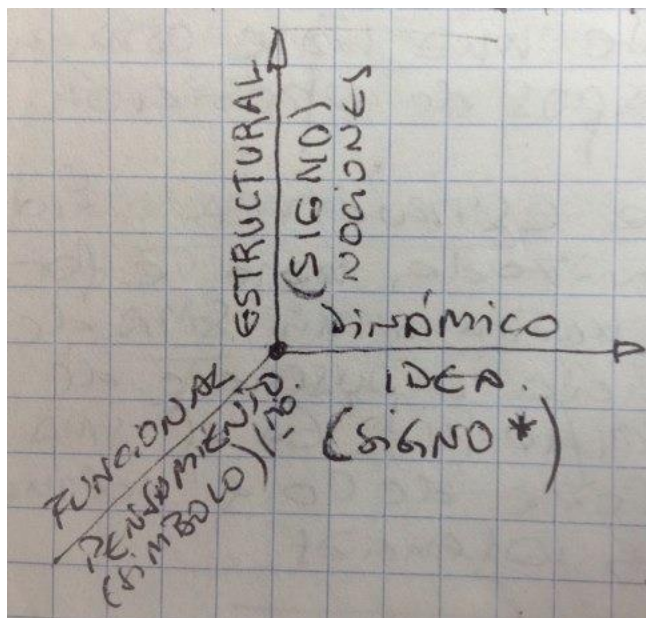 ESTRUCTURAL
(SIGNO)
NOCIONES
DINÁMICO
IDEA.
(SIGNO *)
FUNCIONAL
PENSAMIENTO
(SIMBOLO)